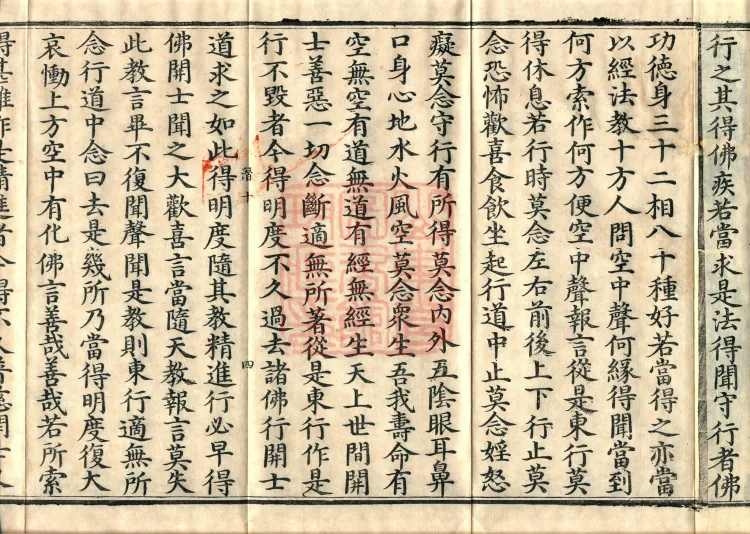 行之其得佛疾若當求是法得聞守行者佛
功德身三十二相八十種好若當得之亦當
以經法教十方人問空中聲何緣得聞當到
何方索作何方便空中聲報言從是東行莫
得休息若行時莫念左右前後上下行止莫
念恐怖歡喜食飲坐起行道中止莫念婬怒
癡莫念守行有所得莫念内外五陰眼耳鼻
口身心地水火風空莫念衆生吾我壽命有
空無空有道無道有經無經生天上世間開
士善惡一切念斷適無所著從是東行作是
行不毀者今得明度不久過去諸佛行開士
四
道求之如此得明度隨其教精進行必早得
佛開士聞之大歡喜言當隨天教報言莫失
此教言畢不復聞聲聞是教則東行適無所
念行道中念曰去是幾所乃當得明度復大
哀慟上方空中有化佛言善哉善哉若所索